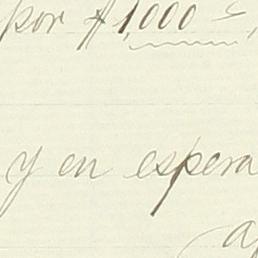 por $1,000
y en espera